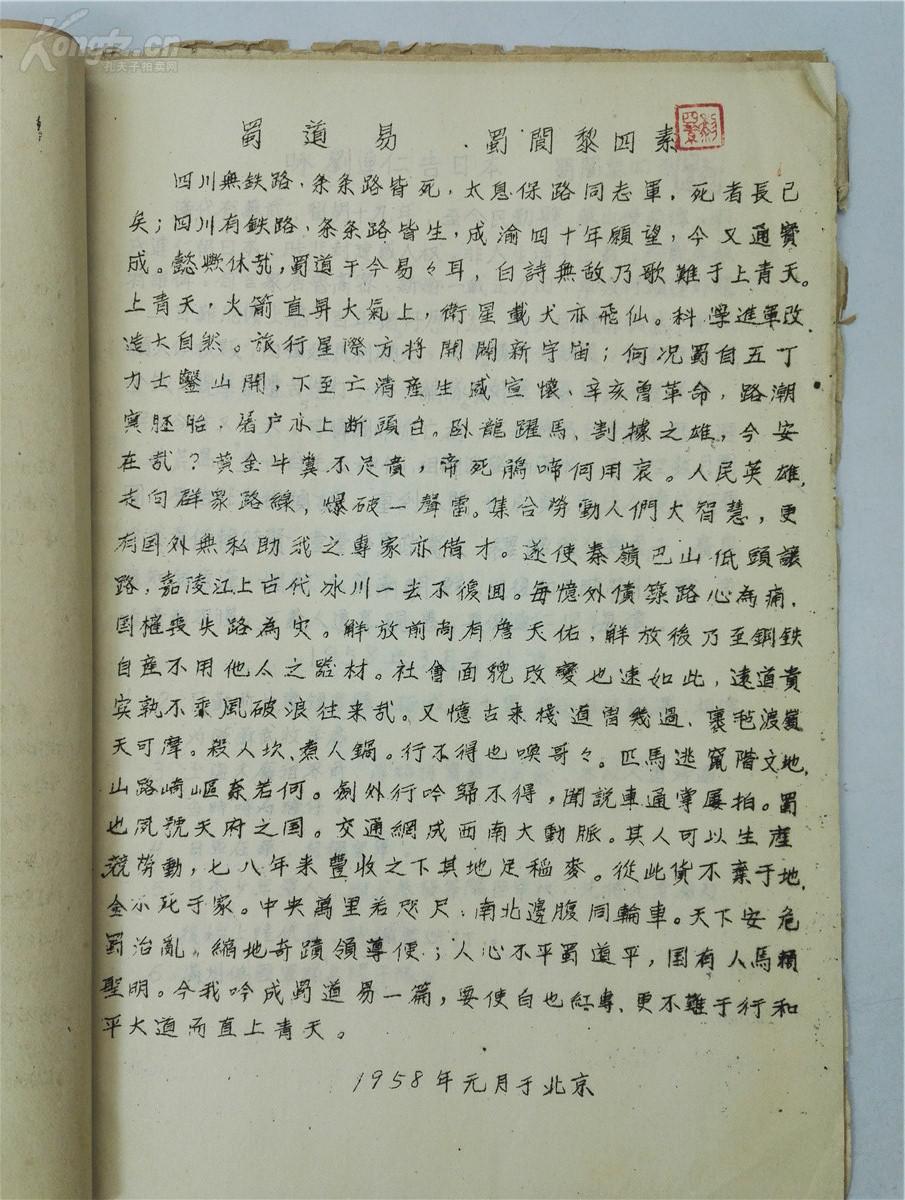 Kongfz.cn
孔夫子拍卖网
蜀道易 蜀閬黎四素
四川無鉄路，条条路皆死，太息保路同志軍，死者長已
矣；四川有鉄路，条条路皆生，成渝四十年願望，今又通寶
成。懿歟休哉，蜀道于今易々耳，白詩無故乃歌難于上青天。
上青天，火箭直昇大氣上，衛星載犬亦飛仙。科學進軍改
造大自然。旅行星際方將開闢新宇宙；何况蜀自五丁
力士鑿山開，下至亡清産生盛宣懷、辛亥曾革命，路潮
寔胚胎，屠户亦上断頭台。臥龍躍馬、割據之雄，今安
在哉？黄金牛糞不足貴，帝死鵑啼何用哀。人民英雄，
走向群衆路綫，爆破一聲雷。集合勞動人們大智慧，更
有国外無私助我之專家亦借才。遂使秦嶺巴山低頭讓
路，嘉陵江上古代冰川一去不復回。每憶外債築路心為痛，
国権喪失路為灾。解放前尚有詹天佑，解放後乃至鋼鉄
自産不用他人之器材。社會面貌改變也速如此，遠道貴
宾孰不乘風破浪往来哉。又憶古来棧道曾幾過、裹毡渡
天可摩。殺人坎、煮人鍋。行不得也喚哥々。匹馬逃竄階文地，
山路崎嶇奈若何。劍外行吟歸不得，聞説車通掌屢拍。蜀
也夙號天府之国。交通網成西南大動脈。其人可以生産
競勞動，七八年来豐收之下其地足稲麥。從此貨不棄于地，
金不死于家。中央萬里若咫尺，南北邊腹同輪車。天下安危
蜀治亂，縮地奇蹟領導使；人心不平蜀道平，国有人馬賴
聖明。今我吟成蜀道易一篇，要使白也紅專、更不難于行和
平大道而直上青天。
1958年元月于北京